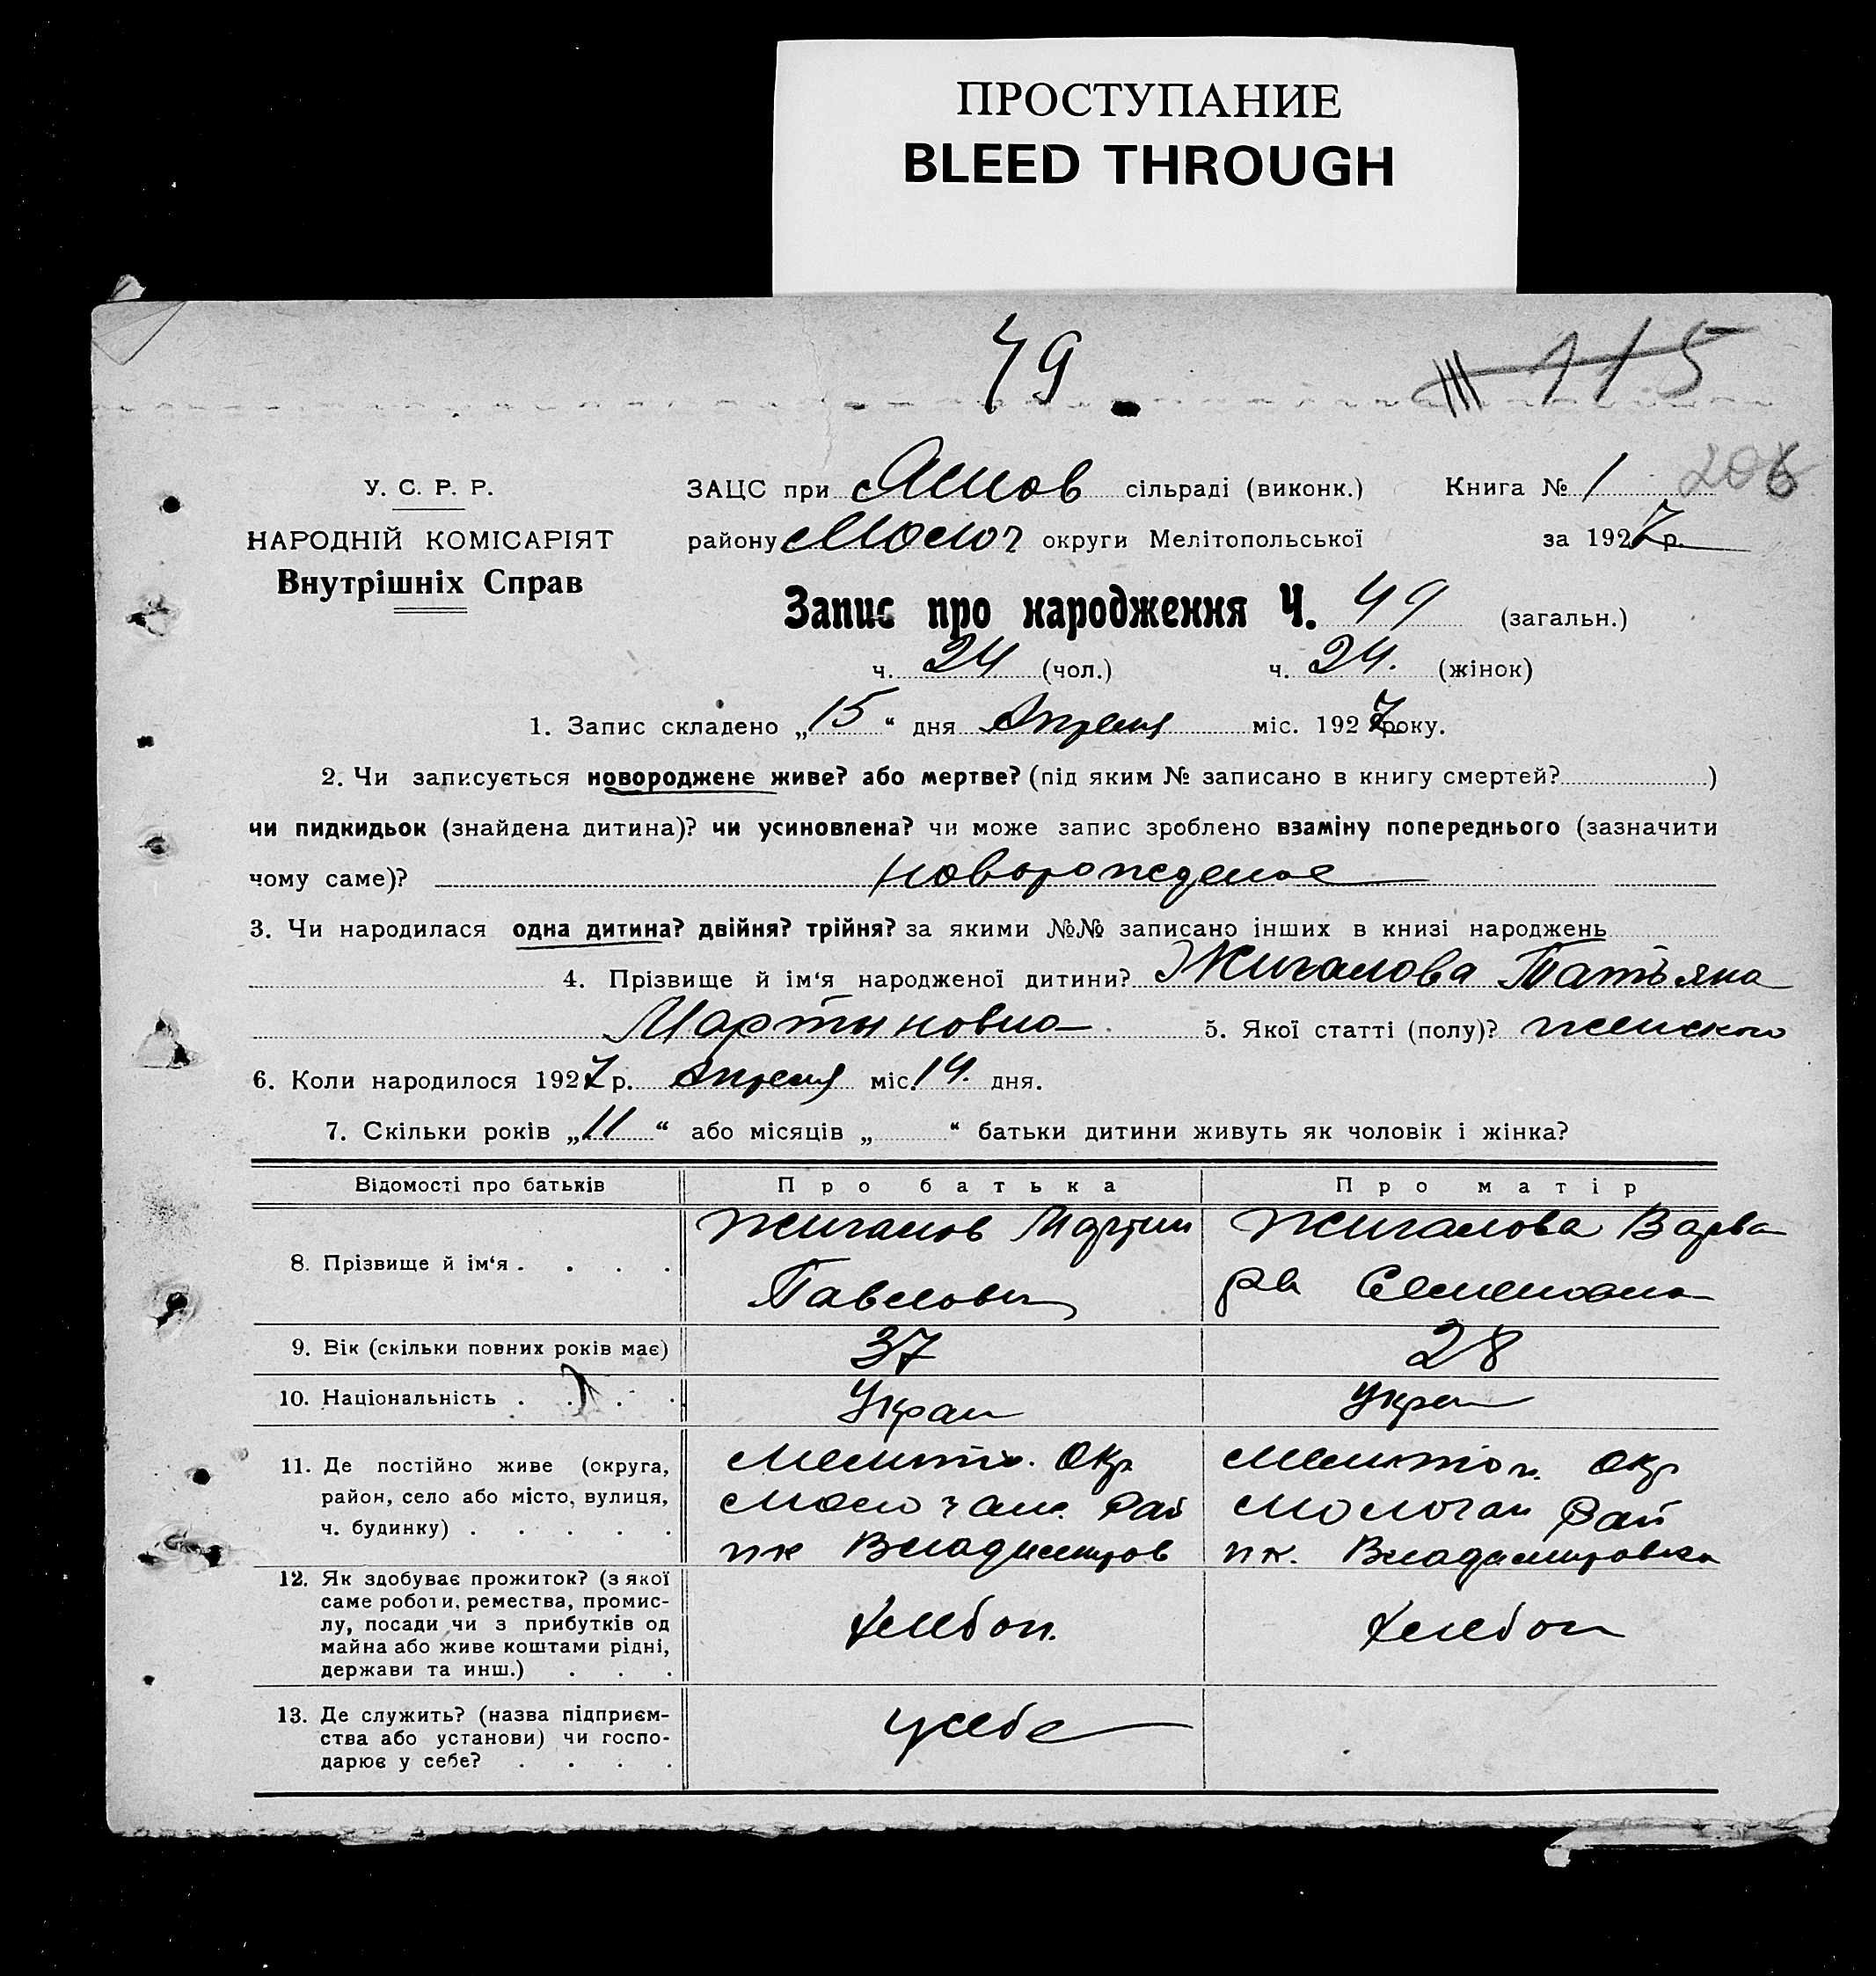 ПРОСТУПАНИЕ
BLEED THROUGH
49
115
206
У. С. Р. Р.
НАРОДНІЙ КОМІСАРІЯТ
Внутрішніх Справ
ЗАЦС при сільраді (виконк.) Книга № 1
району Молоч округи Мелітопольської за 1927 р.
Запис про народження Ч. 49 (загальн.)
ч. 24 (чол.) ч. 24. (жінок)
1. Запис складено „15“ дня Апреля міс. 1927 року.
2. Чи записується новороджене живе? або мертве? (під яким № записано в книгу смертей? )
чи пидкидьок (знайдена дитина)? чи усиновлена? чи може запис зроблено взаміну попереднього (зазначити
чому саме)? новорожденое
3. Чи народилася одна дитина? двійня? трійня? за якими №№ записано інших в книзі народжень
4. Прізвище й ім‘я народженої дитини? Жигалова Татьяна
Мартыновна 5. Якої статті (полу)? женского
6. Коли народилося 1927 р. Апреля міс. 14. дня.
7. Скільки років „11“ або місяців „ “ батьки дитини живуть як чоловік і жінка?
Відомості про батьків Про батька Про матір
8. Прізвище й ім‘я . . . . Жигалов Мартин Павлович Жигалова Варвара Семеновна
9. Вік (скільки повних років має) 37 28
10. Національність . . . . Украи Укра
11. Де постійно живе (округа, Мелитоп. Окр Мелитоп. Окр
район, село або місто, вулиця, Молочан. Рай Молочан Рай
ч. будинку) . . . . . пк Владимиров пк. Владимировка
12. Як здобуває прожиток? (з якої
саме роботи, ремества, промис-
лу, посади чи з прибутків од Хлебоп. Хлебоп
майна або живе коштами рідні,
держави та инш.) . . .
13. Де служить? (назва підприєм-
ства або установи) чи госпо- у себе
дарює у себе? . . . .